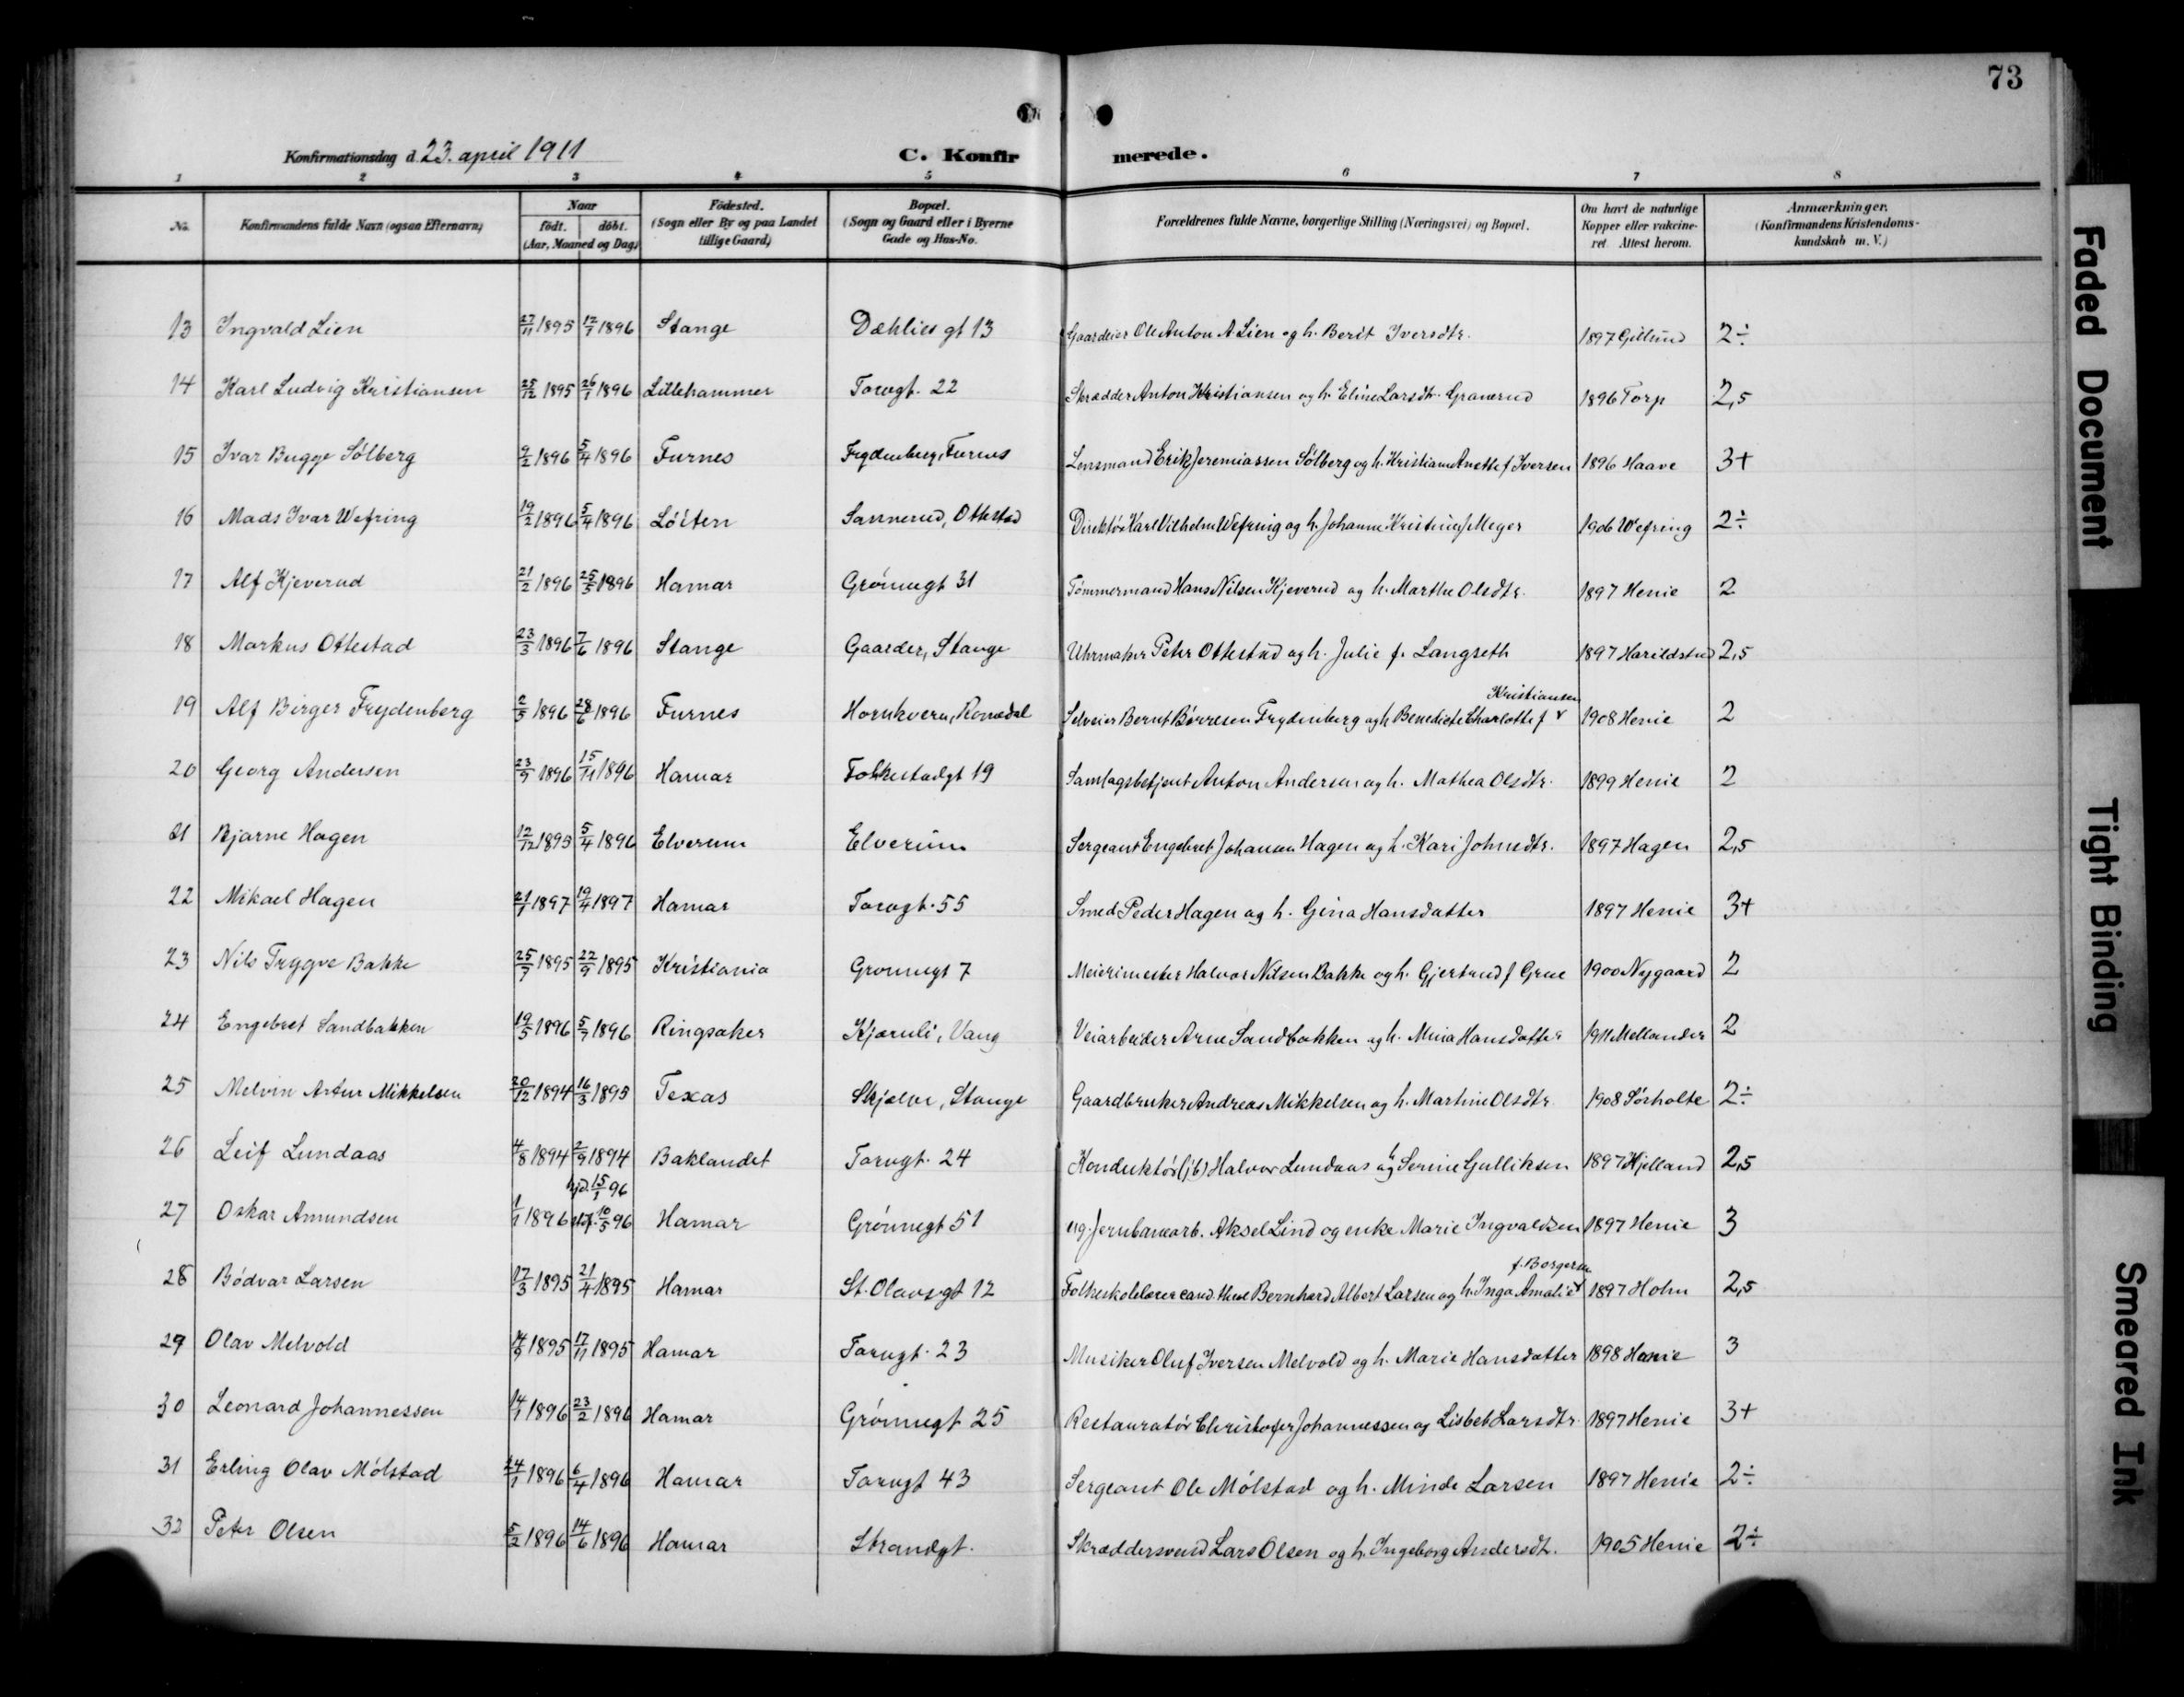 73
Konfirmationsdag d. 23. april 1911 C. Konfir merede.
1 2 3 4 5 6 7 8
No. Konfirmandens fulde Navn (ogsaa Efternavn) Naar født. døbt. (Aar, Maaned og Dag.) Födested. (Sogn eller By og paa Landet tillige Gaard.) Bopæl. (Sogn og Gaard eller i Byerne Gade og Hus-No. Forældrenes fulde Navne, borgerlige Stilling (Næringsvei) og Bopæl. Om havt de naturlige Kopper eller vakcineret. Attest herom. Anmærkninger. (Konfirmandens Kristendomskundskab m. V.)
13 Ingvald Lien 27/11 1895 12/1 1896 Stange Dæhlies gt 13 Gaardeier Ole Anton A Lien og h. Berit Iversdtr. 1897 Gillund 2÷
14 Karl Ludvig Kristiansen 25/12 1895 26/1 1896 Lillehammer Torvgt. 22 Skrædder Anton Kristiansen og h. Eline Larsdtr. Granerud 1896 Torp 2,5
15 Ivar Bugge Sólberg 9/2 1896 5/4 1896 Furnes Frydenberg, Furnes Lensmand Erik Jeremiassen Sólberg og h. Kristiane Anette f Iversen 1896 Haave 3+
16 Mads Ivar Wefring 19/2 1896 5/4 1896 Löiten Sannerud, Ottestad Direktór Karl Vilhelm Wefring og h. Johanne Kristine f Meyer 1906 Wefring 2÷
17 Alf Kjeverud 21/2 1896 25/5 1896 Hamar Grónnegt 31 Tómmermand Hans Nilsen Kjeverud og h. Marthe Olsdtr. 1897 Henie 2
18 Markus Ottestad 23/3 1896 7/6 1896 Stange Gaarder, Stange Uhrmaker Peter Ottestad og h. Julie f. Langseth 1897 Harildstad 2,5
19 Alf Birger Frydenberg 2/5 1896 28/6 1896 Furnes Hornkvern, Romedal Selveier Bernt Bórresen Frydenberg og h Benedicte Charlotte f Kristiansen 1908 Henie 2
20 Georg Andersen 23/9 1896 15/11 1896 Hamar Folkestadgt 19 Samlagsbetjent Anton Andersen og h. Mathea Olsdtr. 1899 Henie 2
21 Bjarne Hagen 12/12 1895 5/4 1896 Elverum Elverum Sergeant Engebret Johansen Hagen og h. Kari Johnsdtr. 1897 Hagen 2,5
22 Mikael Hagen 21/1 1897 19/4 1897 Hamar Torvgt. 55 Smed Peder Hagen og h. Gina Hansdatter 1897 Henie 3+
23 Nils Trygve Bakke 25/7 1895 22/9 1895 Kristiania Grønnegt 7 Meierimester Halvor Nilsen Bakke og h. Gjertrud f Grue 1900 Nygaard 2
24 Engebret Sandbakken 19/5 1896 5/7 1896 Ringsaker Kjærnli, Vang Veiarbeider Arne Sandbakken og h. Mina Hansdatter 1911 Mellander 2
25 Melvin Artur Mikkelsen 20/12 1894 16/3 1895 Texas Skjælve, Stange Gaardbruker Andreas Mikkelsen og h. Martine Olsdtr. 1908 Sórholte 2÷
26 Leif Lundaas 4/8 1894 2/9 1894 Baklandet Torvgt. 24 Konduktór (jb) Halvor Lundaas og h Serine Gulliksen 1897 Hjelland 2,5
27 Oskar Amundsen 1/1 1896 hjd. 15/1 96 stf. 10/5 96 Hamar Grónnegt 51 ug. Jernbanearb. Aksel Lind og enke Marie Ingvaldsen 1897 Henie 3
28 Bódvar Larsen 17/3 1895 21/4 1895 Hamar St. Olavsgt 12 Folkeskolelærer cand. theol Bernhard Albert Larsen og h. Inga Amalie f. Borgersen 1897 Holm 2,5
29 Olav Melvold 14/9 1895 17/11 1895 Hamar Torvgt. 23 Musiker Oluf Iversen Melvold og h. Marie Hansdatter 1898 Henie 3
30 Leonard Johannessen 14/1 1896 23/2 1896 Hamar Grónnegt 25 Restauratór Christofer Johannessen og Lisbet Larsdtr. 1897 Henie 3+
31 Erling Olav Mólstad 24/1 1896 6/4 1896 Hamar Torvgt 43 Sergeant Ole Mólstad og h. Minda Larsen 1897 Henie 2÷
32 Peter Olsen 5/2 1896 14/6 1896 Hamar Strandgt. Skræddersvend Lars Olsen og h. Ingeborg Andersdt. 1905 Henie 2÷
Faded Document
Tight Binding
Smeared Ink